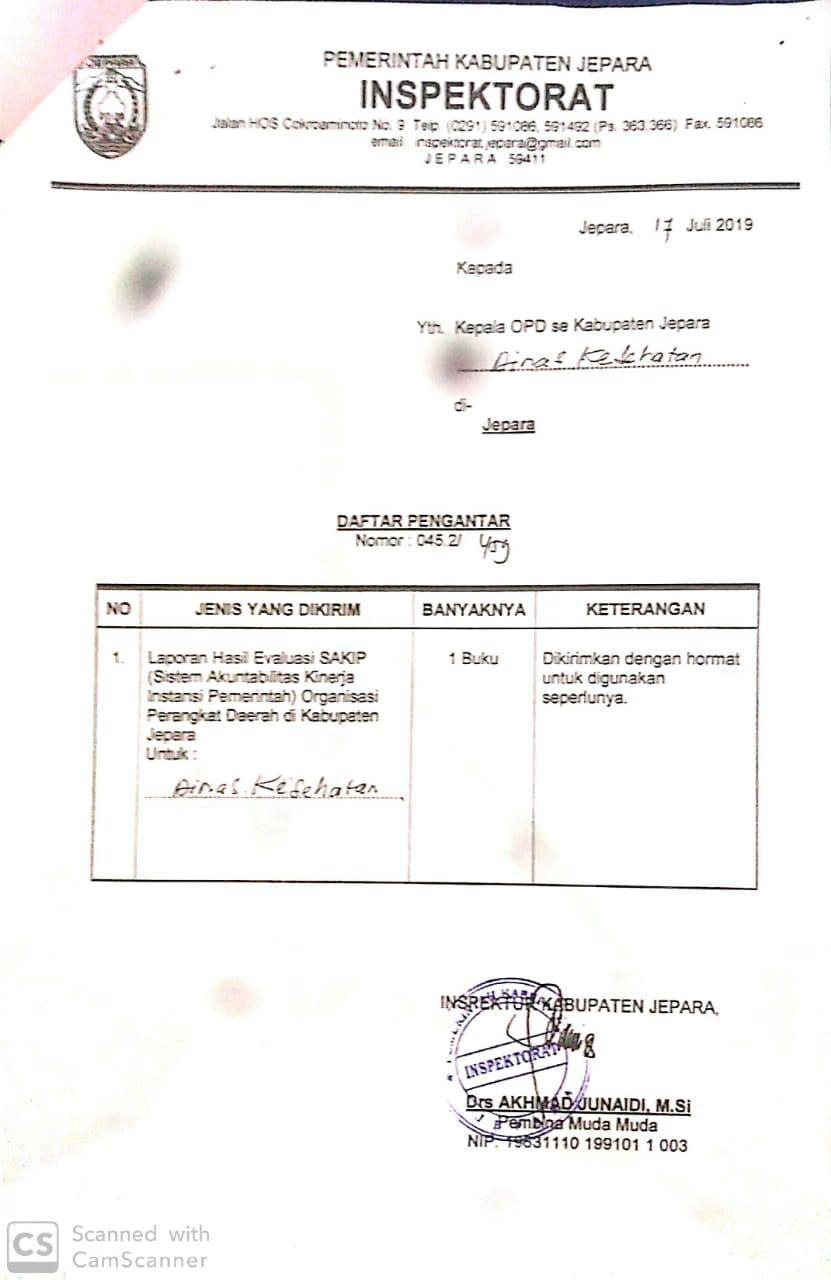 PEMERINTAH KABUPATEN JEPARA
INSPEKTORAT
Jalan HOS Cokroaminoto No. 9 Telp. (0291) 591086, 591492 (Ps. 363,366) Fax. 591086
email : inspektorat.jepara@gmail.com
JEPARA 59411
Jepara, 17 Juli 2019
Kepada
Yth. Kepala OPD se Kabupaten Jepara
Dinas Kesehatan
di-
Jepara
DAFTAR PENGANTAR
Nomor : 045.2/
NO JENIS YANG DIKIRIM BANYAKNYA KETERANGAN
1. Laporan Hasil Evaluasi SAKIP 1 Buku Dikirimkan dengan hormat
(Sistem Akuntabilitas Kinerja untuk digunakan
Instansi Pemerintah) Organisasi seperlunya.
Perangkat Daerah di Kabupaten
Jepara
Untuk :
Dinas Kesehatan
INSPEKTUR KABUPATEN JEPARA,
INSPEKTORAT
Drs AKHMAD JUNAIDI, M.Si
Pembina Muda Muda
NIP. 19631110 199101 1 003
CS Scanned with
CamScanner